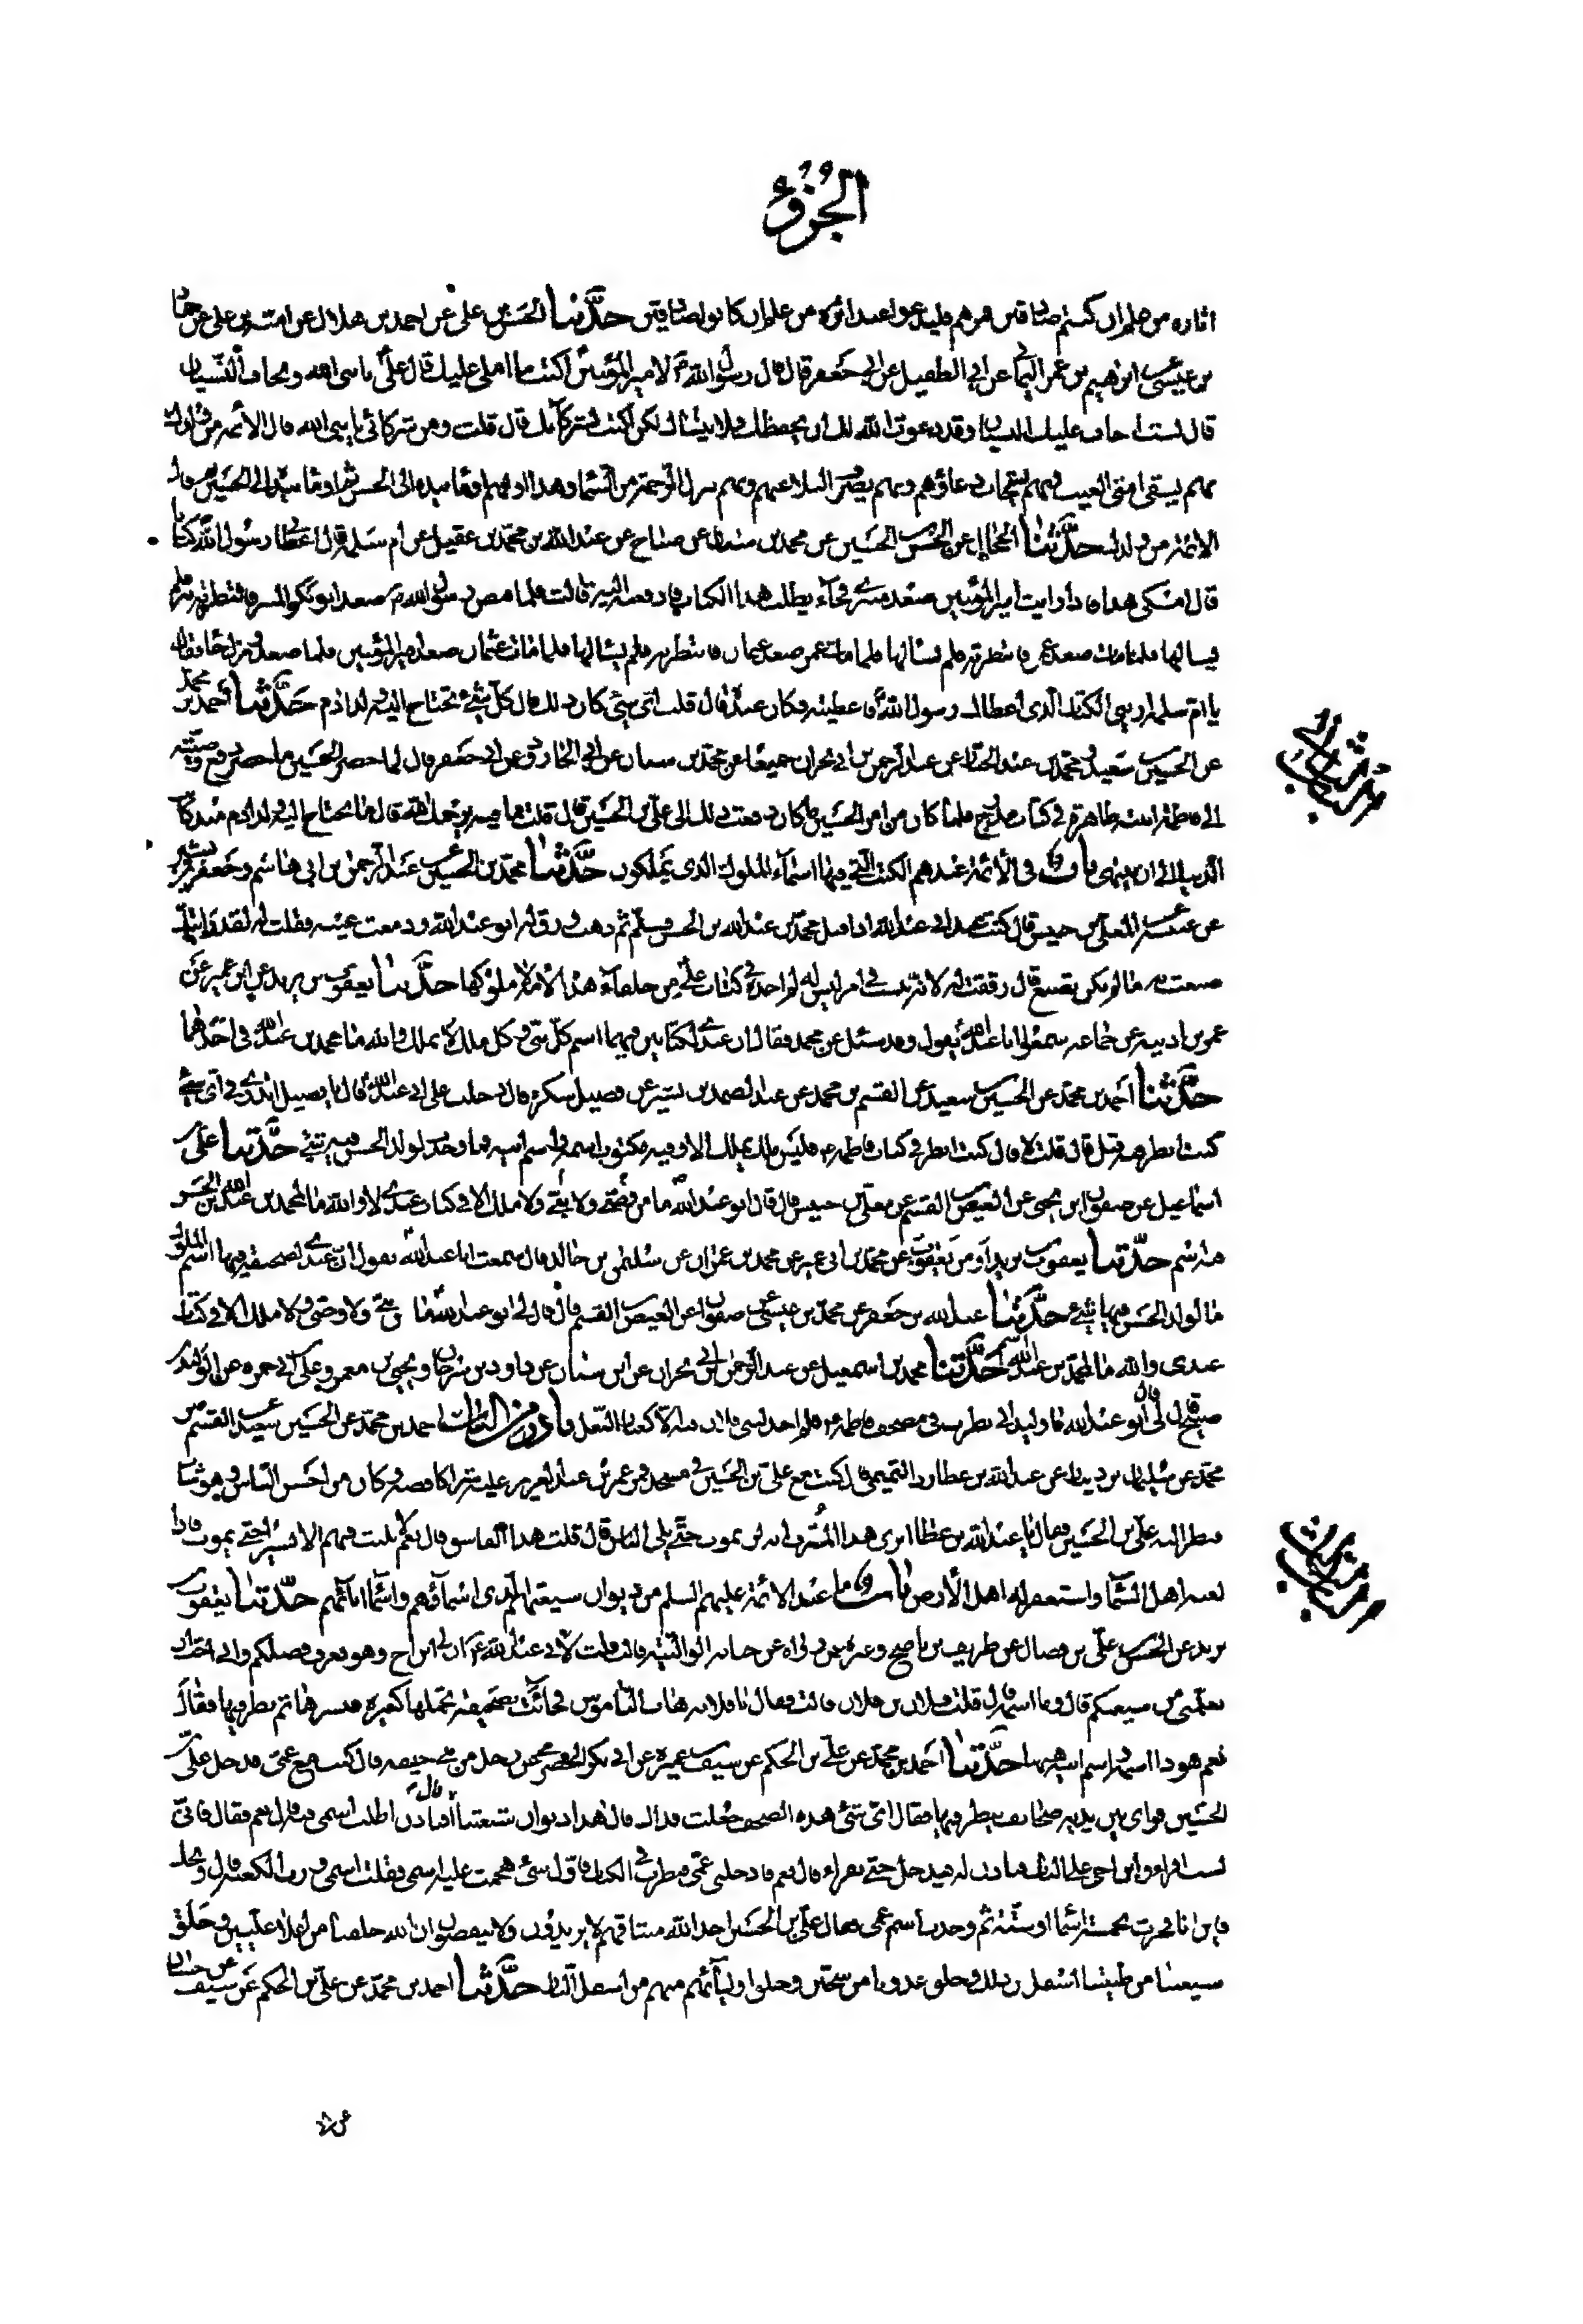 الجُزؤُ
اثاره من علم ان كنتم صادقين هم فليدعوا عندنا اثره من علم ان كانوا صادقين حدَّثنا الحسن بن علىّ عن احمد بن هلال عن امية بن على عن حماد
بن عيسى عن ابرهيم بن عمر اليمانى عن ابى الطفيل عن ابى جعفر قال قال رسول الله لامير المؤمنين اكتب ما املى عليك قال علىّ يا نبى الله وتخاف النسيان
قال لست اخاف عليك النسيان وقد دعوت الله لك ان يحفظك فلا ينساك لكن اكتب لشركائك قال قلت ومن شركائى يا نبى الله قال الائمه من ولدك
بهم يسقى امتى الغيث وبهم يستجاب دعاؤهم وبهم يصرف البلاء عنهم وبهم ينزل الرحمة من السماء وهذا اولهم واومأ بيده الى الحسن ثم اومأ بيده الى الحسين ثم قال
الائمة من ولدك حدَّثنا عن الحسن بن الحسين عن محمد بن عن صباح عن عبد الله بن محمد بن عقيل عن ام سلمة قال اعطانى رسول الله كتابا
قال امسكى هذا فاذا رايت امير المؤمنين صعد منبرى فجاء يطلب هذا الكتاب فادفعيه اليه قالت فلما قبض رسول الله صعد ابو بكر المنبر فانتظرته فلم
يسالها فلما مات صعد عمر فانتظرته فلم يسالها فلما مات عمر صعد عثمان فانتظرته فلم يسالها فلما مات عثمان صعد امير المؤمنين فلما صعد ونزل جاء فقال
يا ام سلمة ارينى الكتاب الذى اعطاك رسول الله فاعطيته فكان عنده قال قلت اى شئ كان ذلك قال كل شئ تحتاج اليه ولد ادم حدَّثنا احمد بن محمد
عن الحسين بن سعيد ومحمد بن عبد الجبار عن عبد الرحمن بن ابى نجران جميعا عن محمد بن سنان عن ابى الجارود عن ابى جعفر قال لما حضر الحسين ما حضر دفع وصيته
الى فاطمة ابنته ظاهرة فى كتاب مدرج فلما كان من امر الحسين ما كان دفعت ذلك الى على بن الحسين قال قلت فما فيه يرحمك الله قال ما يحتاج اليه ولد ادم منذ كانت
الدنيا الى ان تفنى باب فى الائمة عندهم الكتب التى فيها اسماء الملوك الذى يملكون حدَّثنا محمد بن الحسين عن عبد الرحمن بن ابى هاشم وجعفر بن بشير
عن عنبسه عن المعلى بن خنيس قال كنت عند ابى عبد الله اذا اقبل محمد بن عبد الله بن الحسن فسلم ثم ذهب ورق له ابو عبد الله ودمعت عينه فقلت له لقد رايتك
صنعت به ما لم تكن تصنع قال رققت له لانه ينسب فى امر ليس له لم اجده فى كتاب على من خلفاء هذه الامة ولا ملوكها حدَّثنا يعقوب بن يزيد عن ابن ابى عمير عن
عمر بن اذينه عن جماعة سمعوا ابا عبد الله يقول وقد سئل عن محمد فقال ان عندى لكتابين فيهما اسم كل نبى وكل ملك يملك والله ما محمد بن عبد الله فى احدهما
حدَّثنا احمد بن محمد عن الحسين بن سعيد عن القسم بن محمد عن عبد الصمد بن بشير عن فضيل سكرة قال دخلت على ابى عبد الله قال يا فضيل اتدرى فى اى شئ
كنت انظر فيه قبل قال قلت لا قال كنت انظر فى كتاب فاطمة فليس ملك يملك الا وفيه مكتوب باسمه واسم ابيه فما وجد لولد الحسن فيه شئ حدَّثنا على بن
اسماعيل عن صفوان بن يحيى عن العيص بن القسم عن معلى بن خنيس قال قال ابو عبد الله ما من ولا نبى ولا ملك الا فى كتاب عندى لا والله ما لمحمد بن عبد الله بن الحسن
فيه اسم حدَّثنا يعقوب بن يزيد عن محمد بن ابى عمير عن محمد بن عمران عن سليمان بن خالد قال سمعت ابا عبد الله يقول ان عندى لصحيفة فيها اسم الملوك
ما لولد الحسن فيها شئ حدَّثنا عبد الله بن جعفر عن محمد بن عيسى عن صفوان عن العيص بن القسم قال قال لى ابو عبد الله ما نبى ولا وصى ولا ملك الا فى كتاب
عندى والله ما لمحمد بن عبد الله اسم حدَّثنا محمد بن اسمعيل عن عبد الرحمن بن ابى نجران عن ابن سنان عن داود بن سرحان ويحيى بن معمر وعلى بن ابى حمزه عن الوليد بن
صبيح قال قال لى ابو عبد الله يا وليد انى نظرت فى مصحف فاطمة فلم اجد لبنى فلان فيه الا كغبار النعل نادر من الباب احمد بن محمد عن الحسين بن سعيد عن القسم بن
محمد عن سليمان بن دينار عن عبد الله بن عطاء التميمى قال كنت مع على بن الحسين فى مسجد فمر عمر بن عبد العزيز عليه شراكا فضة وكان من احسن الناس وهو شاب
فنظر اليه على بن الحسين فقال يا عبد الله بن عطا اترى هذا المترف انه لن يموت حتى يلى الناس قال قلت هذا الفاسق قال نعم لا يلبث فيهم الا يسيرا حتى يموت فاذا
لعنه اهل السماء واستغفر له اهل الارض باب ما عند الائمة عليهم السلم من ديوان شيعتهم الذى اسماؤهم واسماء ابائهم حدَّثنا يعقوب بن
يزيد عن الحسن بن على بن فضال عن طريف بن ناصح وغيره عمن رواه عن حبابه الوالبيه قالت قلت لابى عبد الله ان لى ابن اخ وهو يعرف فضلكم وانى احب ان
تعلمنى من شيعتكم قال وما اسمه قالت قلت فلان بن فلان قالت فقال يا فلانه هات الناموس فجائت بصحيفة تحملها كبيرة فنشرها ثم نظر فيها فقال
نعم هو ذا اسمه واسم ابيه هيهنا حدَّثنا احمد بن محمد عن على بن الحكم عن سيف بن عميرة عن ابى بكر الحضرمى عن رجل من بنى حنيفه قال كنت مع عمى فدخل على على بن
الحسين فراى بين يديه صحائف ينظر فيها فقال اى شئ هذه الصحف جعلت فداك قال هذا ديوان شيعتنا قال افتاذن اطلب اسمى فيه قال نعم فقال فانى
لست اقراء وابن اخى على الباب فتاذن له فيدخل حتى يقراء قال نعم فادخلنى عمى فنظرت فى الكتاب فاول شئ هجمت عليه اسمى فقلت اسمى ورب الكعبة قال ويحك
فاين انا فجزت بخمسة اسماء او ستة ثم وجدت اسم عمى فقال على بن الحسين اخذ الله ميثاقهم لا يزيدون ولا ينقصون ان الله خلقنا من اعلا عليين وخلق
شيعتنا من طينتنا اسفل من ذلك وخلق عدونا من سجين وخلق اوليائهم منهم من اسفل النار حدَّثنا احمد بن محمد عن على بن الحكم عن سيف عن حسان